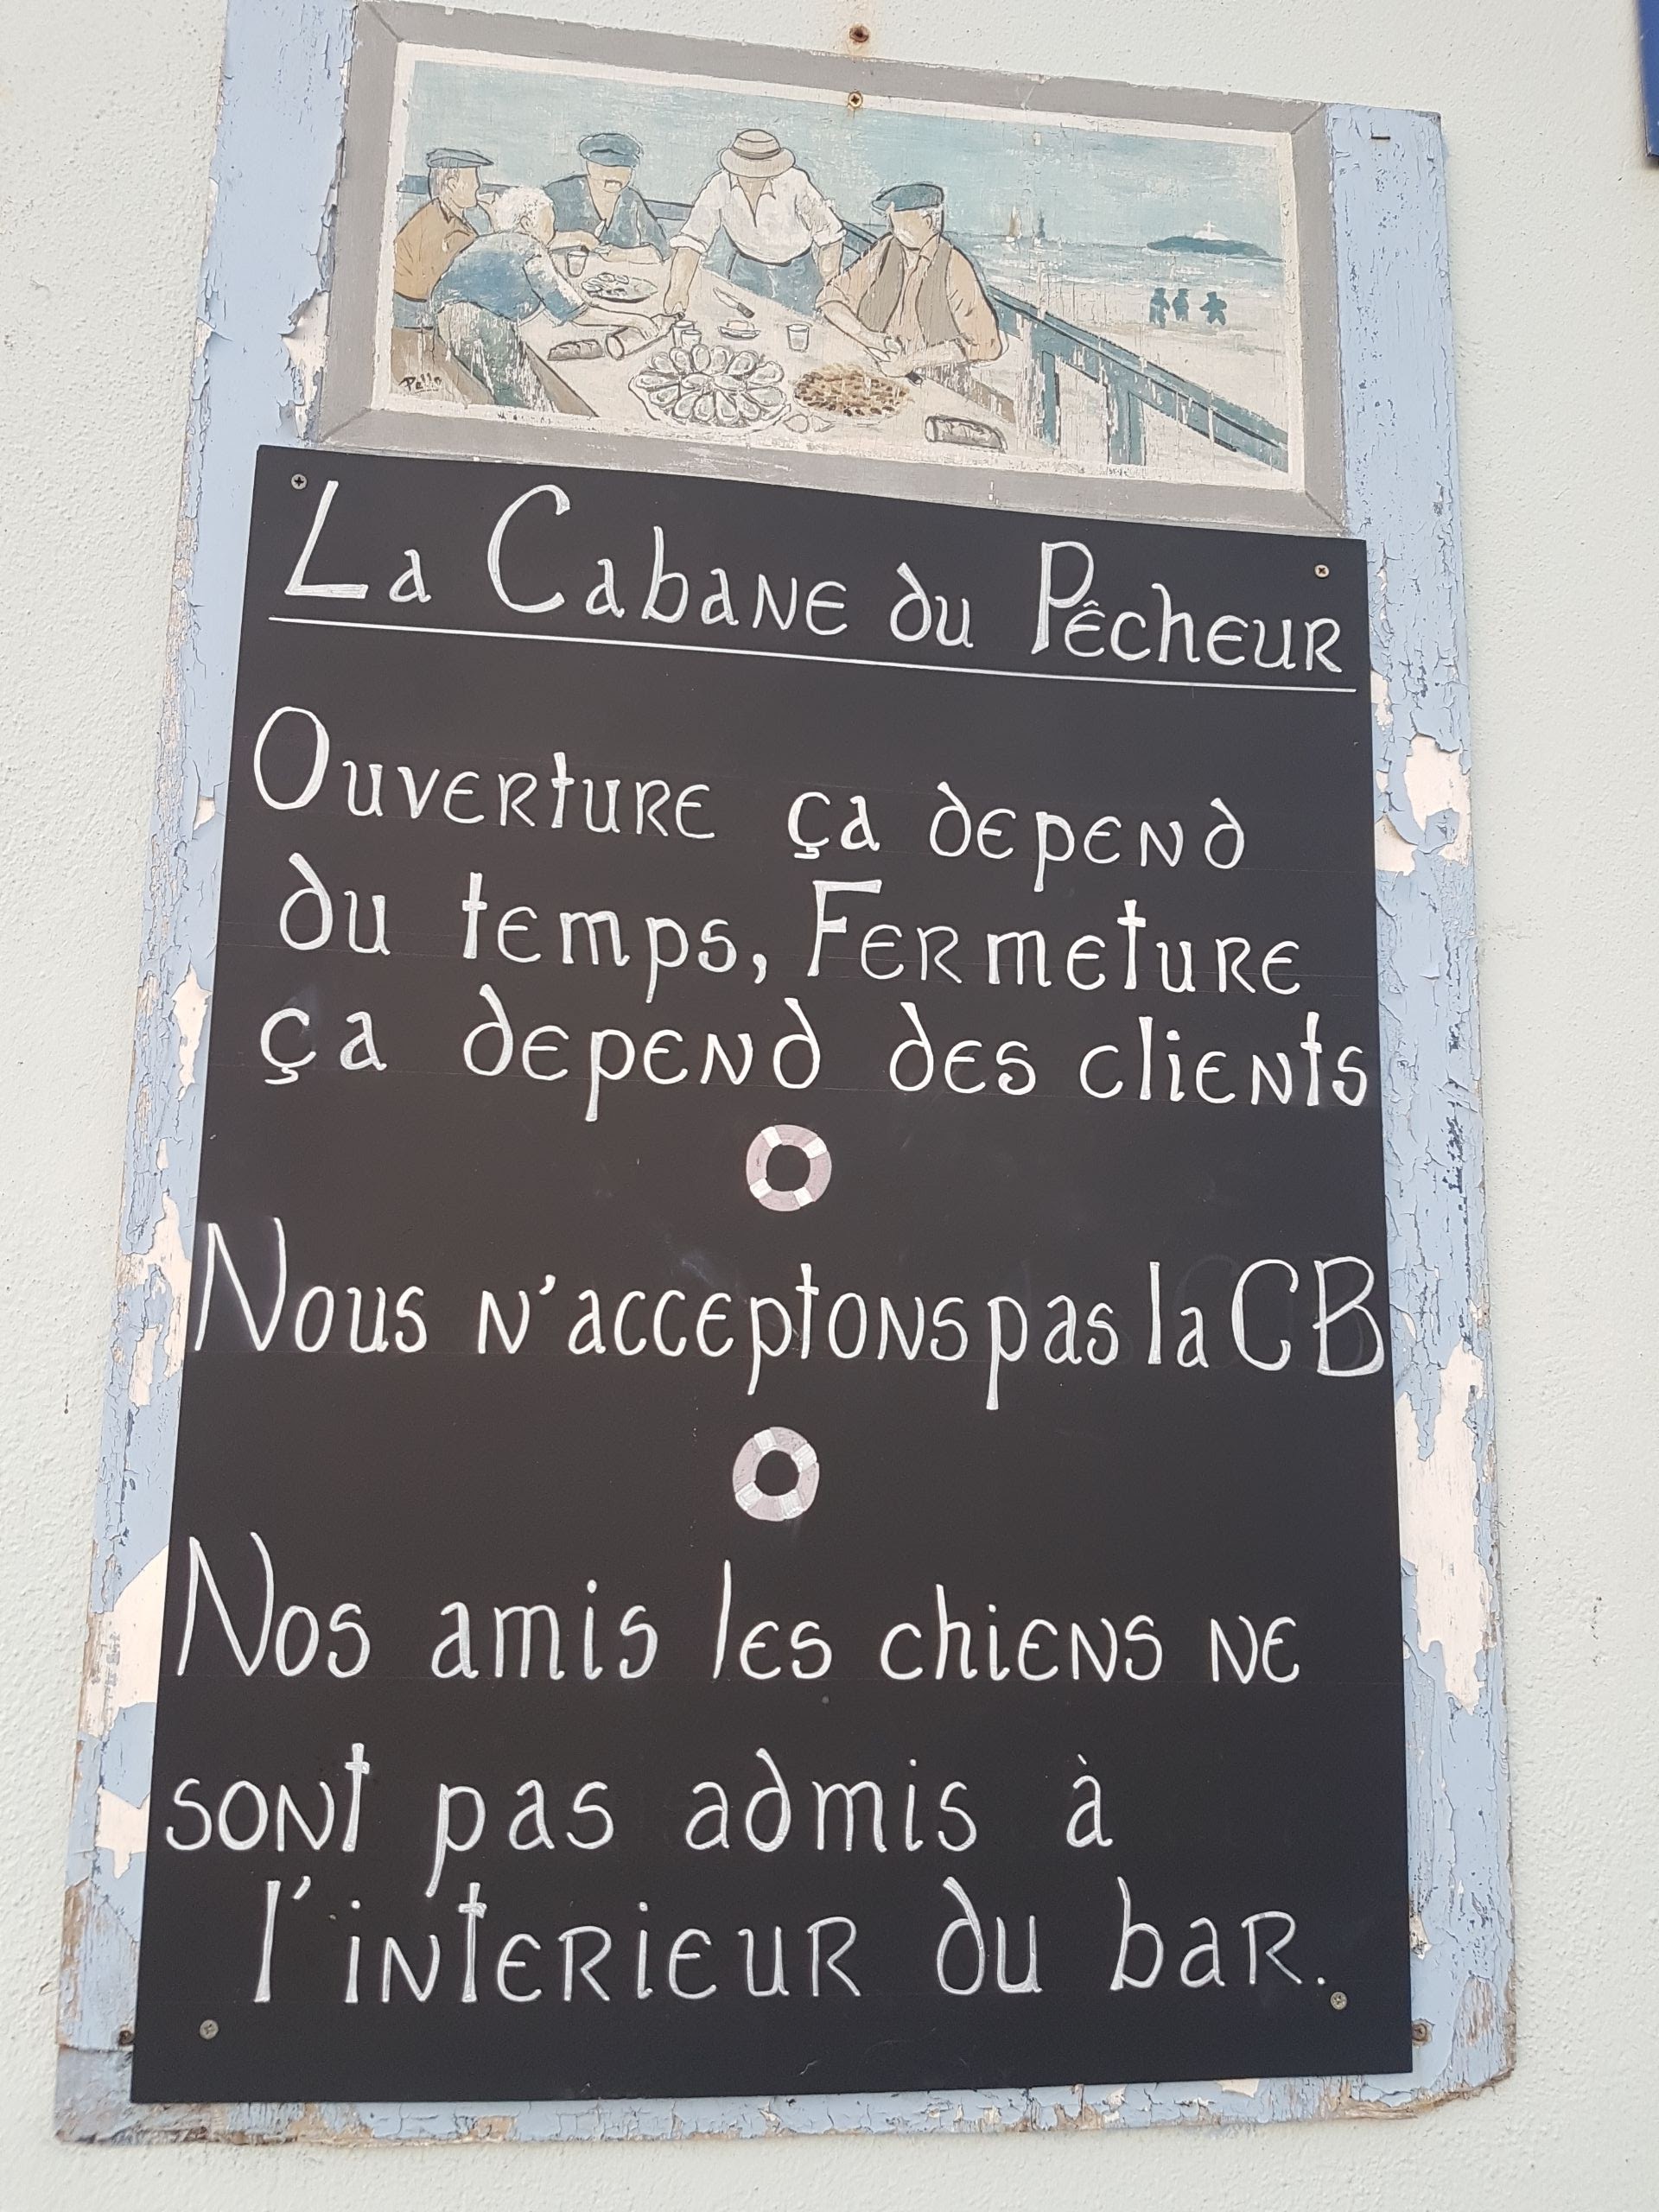 La Cabane du Pêcheur
Ouverture ça depend
du temps, Fermeture
ça depend des clients
Nous n'acceptons pas la CB
Nos amis les chiens ne
sont pas admis à
l'interieur du bar.